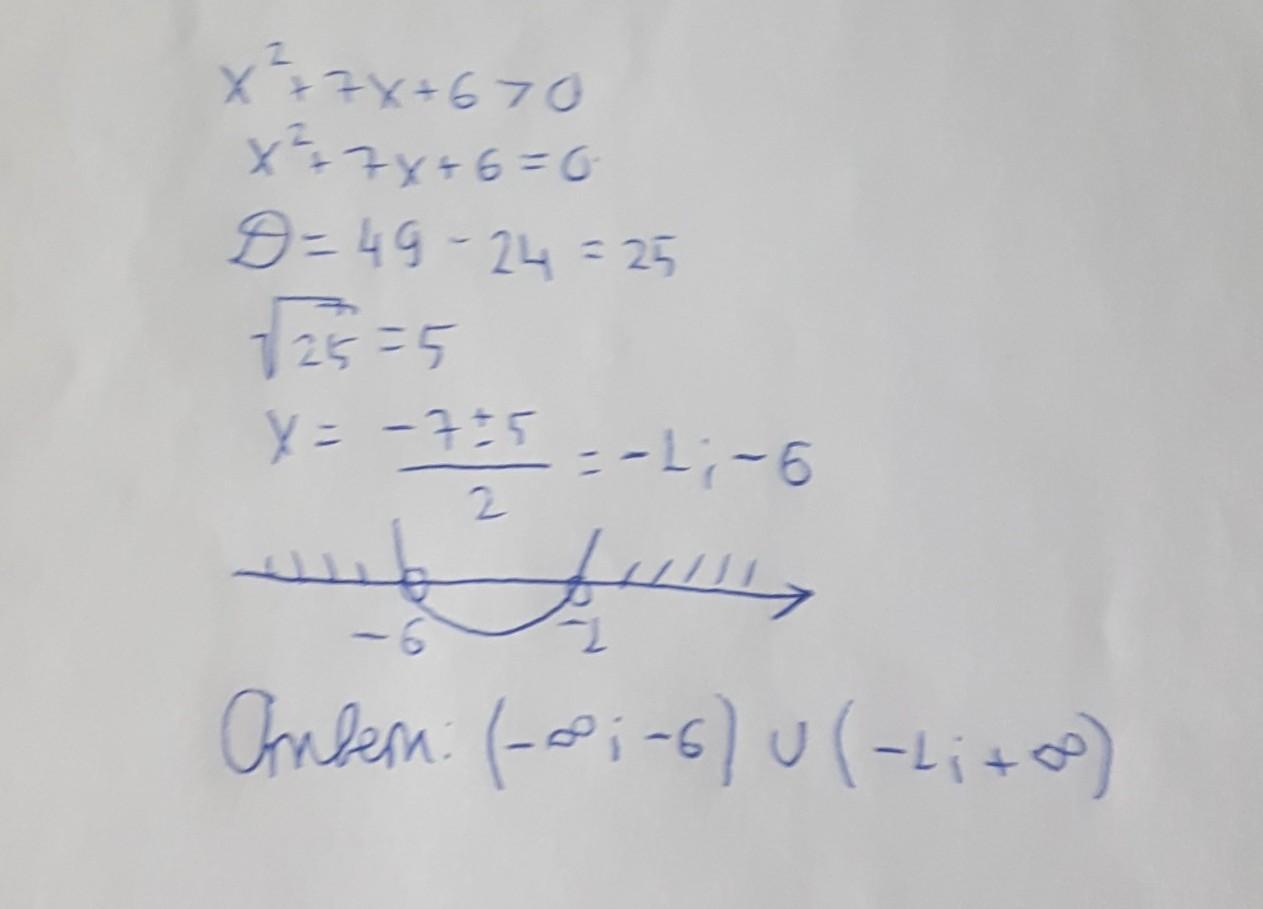 x²+7x+6>0
x²+7x+6=0
D=49-24=25
√25=5
x=(-7±5)/2=-1;-6
-6 -1
Ответ: (-∞;-6)∪(-1;+∞)